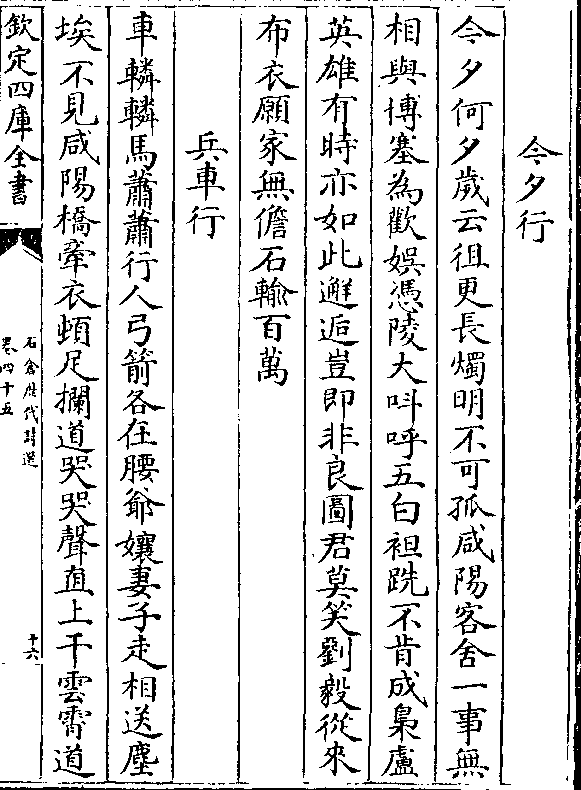 今夕行
今夕何夕歲云徂更長燭明不可孤咸陽客舍一事無
相與搏塞為歡娛憑陵大呌呼五白袒跣不肯成梟盧
英雄有時亦如此邂逅豈即非良圖君莫笑劉毅從來
布衣願家無儋石輸百萬
兵車行
車轔轔馬蕭蕭行人弓箭各在腰爺孃妻子走相送塵
埃不見咸陽橋牽衣頓足攔道哭哭聲直上干雲霄道
欽定四庫全書
石倉歷代詩選
卷四十五
十六